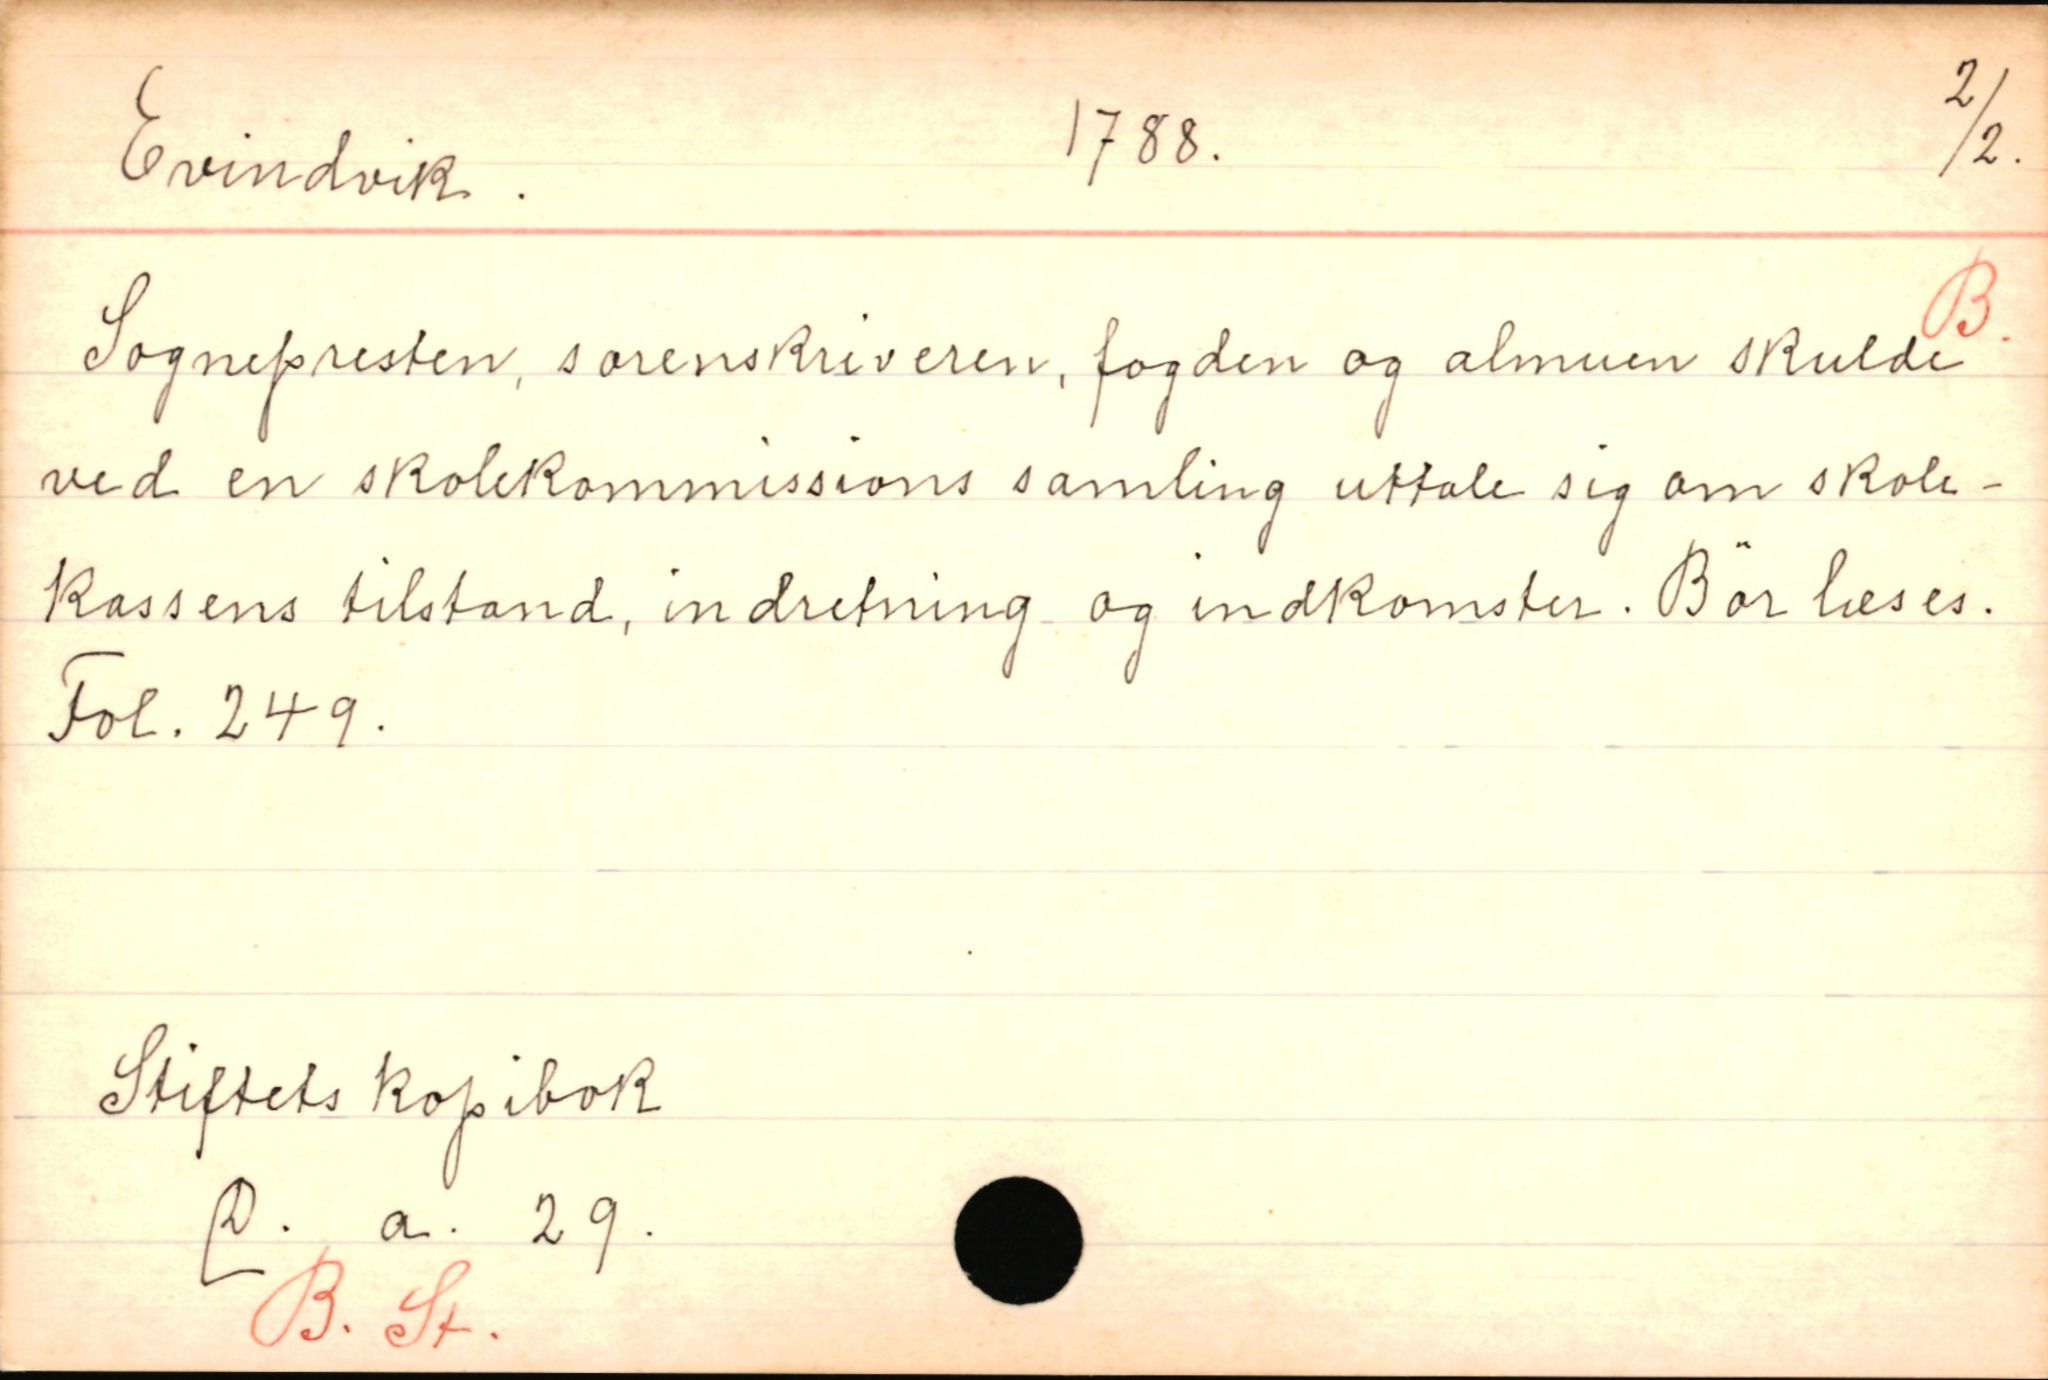 Evindvik. 1788. 2/2.
B.
Sognepresten, sorenskriveren, fogden og almuen skulde
ved en skolekommissions samling uttale sig om skole-
kassens tilstand, indretning og indkomster. Bör læses.
Fol. 249.
Stiftets kopibok
a. 29.
B. St.